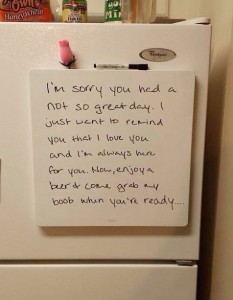 Crown
HoneyWheat
I'm sorry you had a
not so great day. I
just want to remind
you that I love you
and I'm always here
for you. Now, enjoy a
beer & come grab my
boob when you're ready....